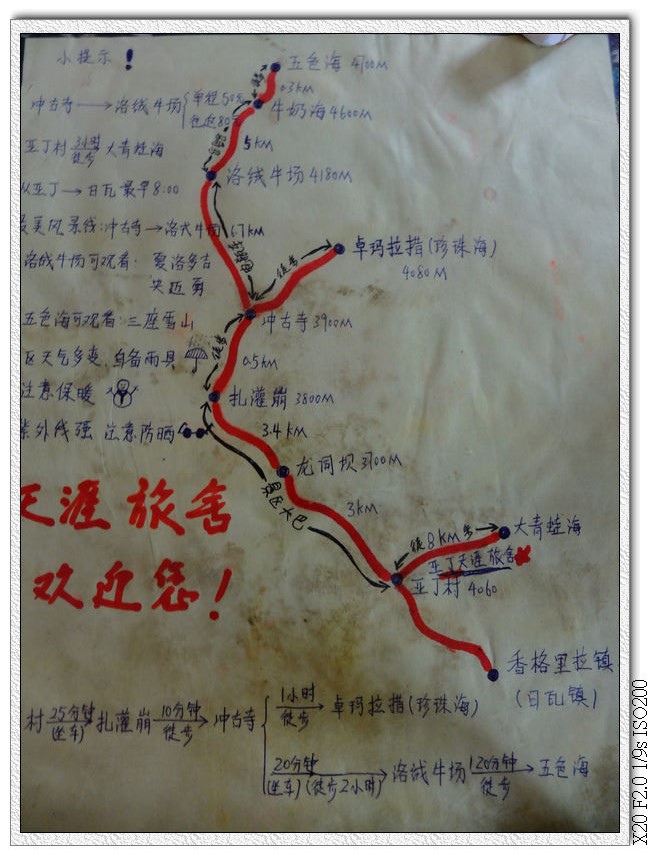 小提示！
冲古寺→洛绒牛场 单程50元
往返80元
亚丁村 3小时 徒步 大青蛙海
从亚丁→日瓦最早8:00
最美风景线:冲古寺→洛戎牛场
洛绒牛场可观看: 夏洛多吉
央迈勇
五色海可观看:三座雪山
区天气多变,自备雨具
注意保暖
紫外线强 注意防晒
天涯旅舍
欢迎您！
五色海 4700M
0.3KM
牛奶海 4600M
5KM
洛绒牛场 4180M
6.7KM
电瓶车
徒步
卓玛拉措(珍珠海)
4080M
冲古寺 3900M
徒步
0.5KM
扎灌崩 3800M
3.4KM
龙同坝 3700M
景区大巴
3KM
徒 8KM 步
大青蛙海
亚丁天涯旅舍
亚丁村 4060
香格里拉镇
(日瓦镇)
村 25分钟 (坐车) 扎灌崩 10分钟 徒步 冲古寺
1小时 徒步 卓玛拉措(珍珠海)
20分钟 (坐车)(徒步2小时) 洛绒牛场 120分钟 徒步 五色海
X20 F2.0 1/9s ISO200